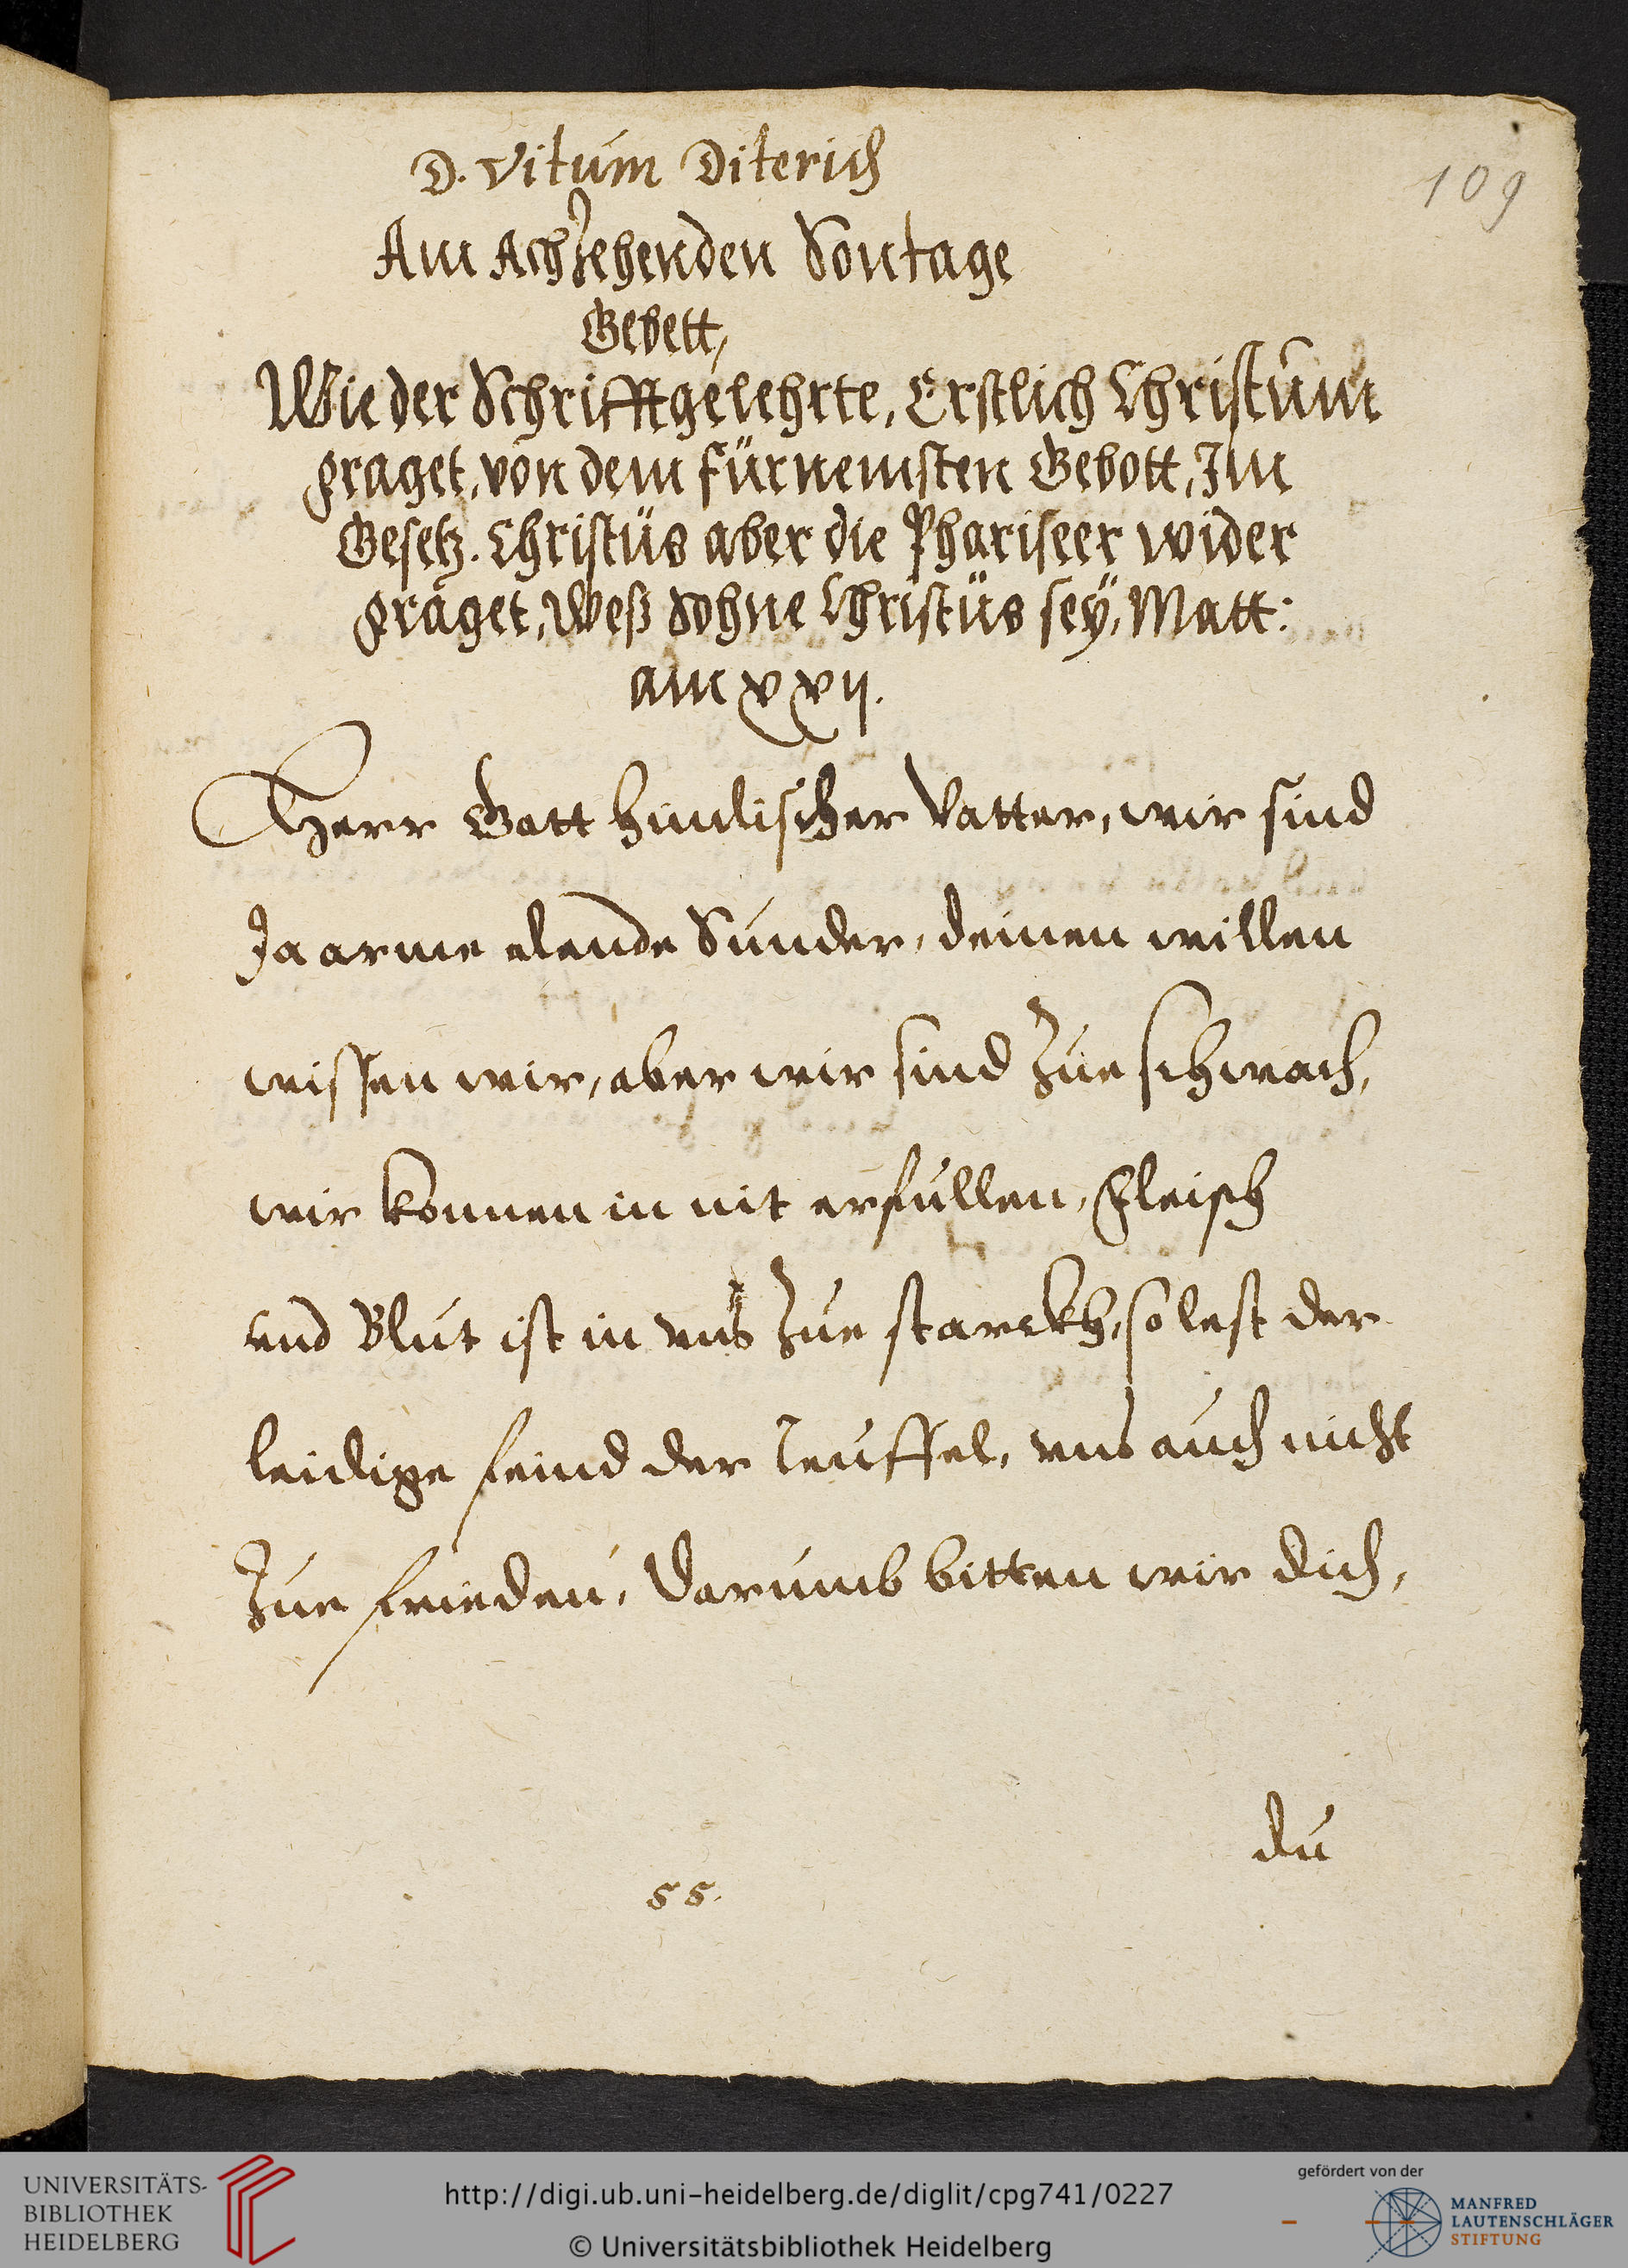 D. Vitum Diterich
109
Am Achzehenden Sontage
Gebett,
Wie der Schrifftgelehrte, Erstlich Christum
fraget, von dem fürnemsten Gebott, Im
Gesetz. Christus aber die Phariseer wider
fraget, Weß Sohne Christus seÿ, Matt:
am xxij.
Herr Gott himlischer Vatter, wir sind
Ja arme elende Sunder, deinen willen
wissen wir, aber wir sind Zue schwach,
wir konnen in nit erfullen, Fleisch
und Blut ist in uns Zue starckh, so lest der
leidige feind der Teuffel, uns auch nicht
Zue frieden, Darumb bitten wir dich,
du
55.
UNIVERSITÄTS-
BIBLIOTHEK
HEIDELBERG
http://digi.ub.uni-heidelberg.de/diglit/cpg741/0227
© Universitätsbibliothek Heidelberg
gefördert von der
MANFRED
LAUTENSCHLÄGER
STIFTUNG